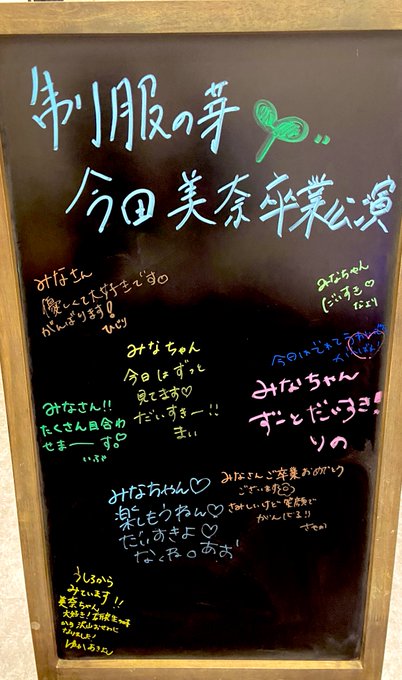 制服の芽
今田美奈卒業公演
みなさん
優しくて大好きです。
がんばります!
ひじり
みなちゃん
だいすき♡
なより
みなちゃん
今日はずっと
見てます♡
だいすきー!!
まい
今日は
みなちゃん
ずーとだいすき!
りの
みなさん!!
たくさん目合わ
せまーーす。♡
いぶ
みなさんご卒業おめでとう
ございます
さみしいけど笑顔で
がんばる!!
さやか
みなちゃん♡
楽しもうねん♡
だいすきよ♡
あお
うしろから
みています!!
美奈ちゃん
大好き!
なりました!